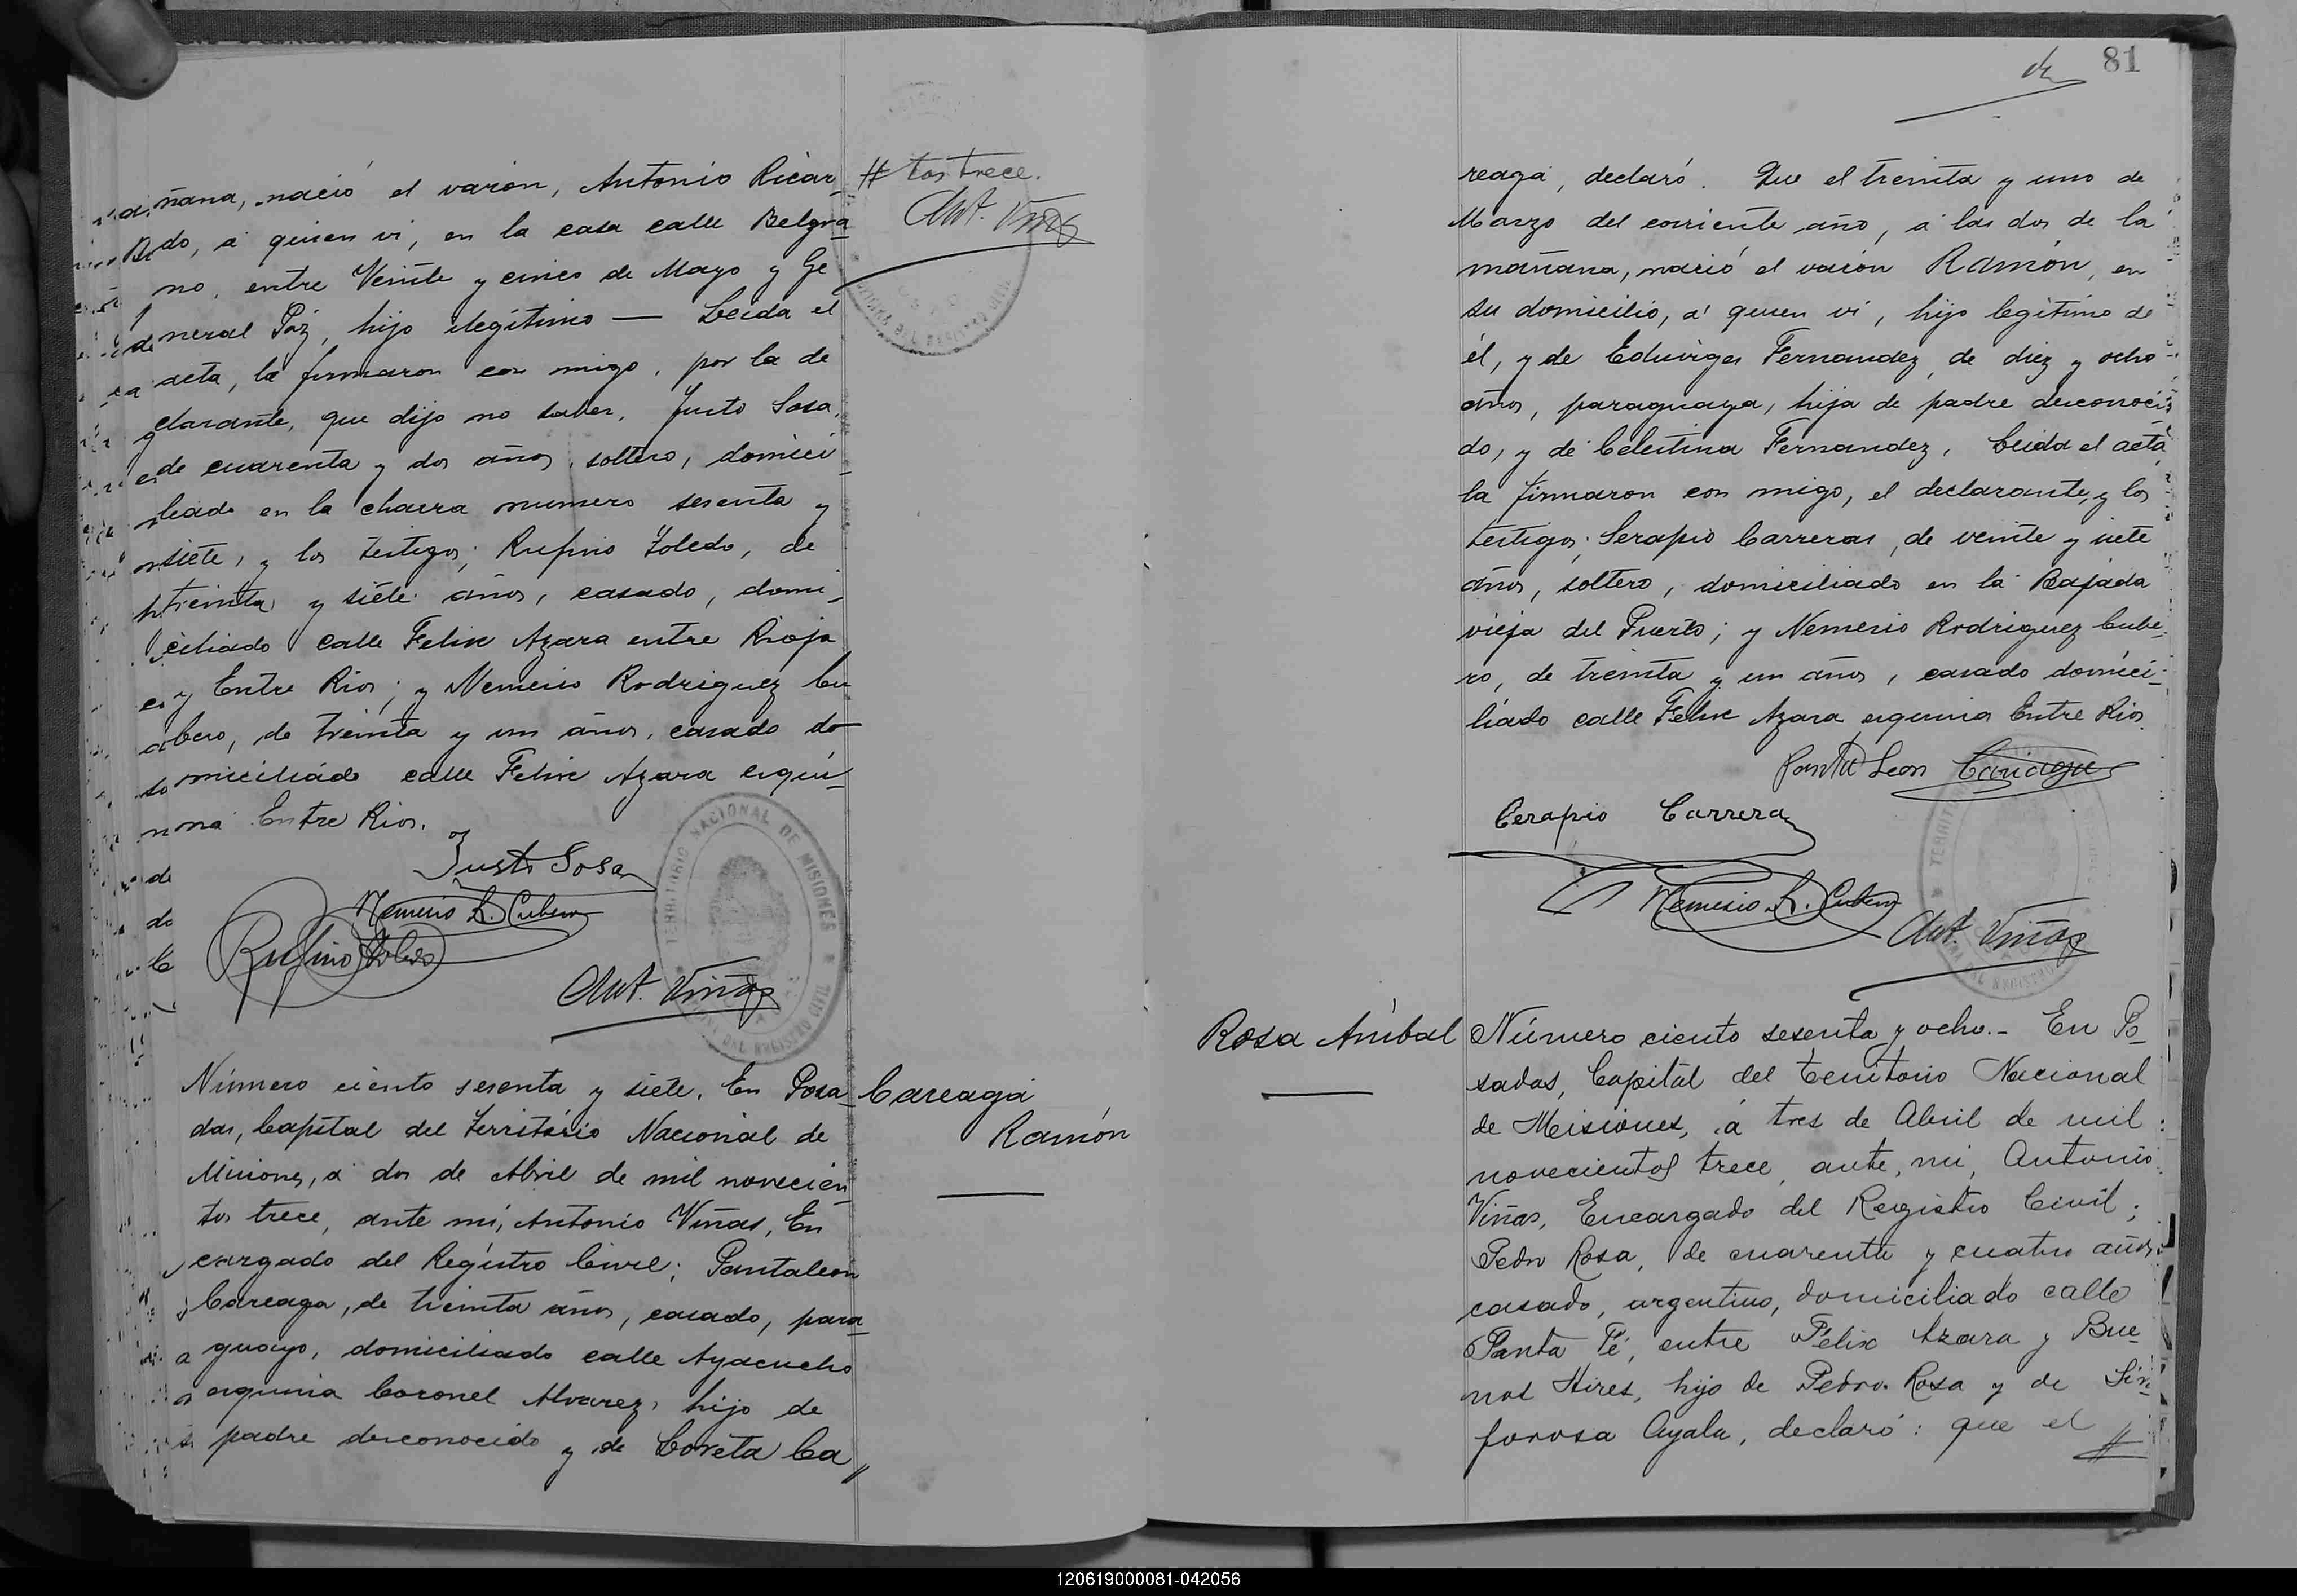 ñana, nació el varón, Antonio Ricar
do, á quien vi, en la casa calle Belgra
no, entre Veinte y cinco de Mayo y Ge
neral Paz, hijo ilegítimo — Leida el
acta, la firmaron con migo, por la de
clarante, que dijo no saber, Justo Sosa,
de cuarenta y dos años, soltero, domici
liado en la chacra numero sesenta y
siete, y los testigos; Rufino Toledo, de
treinta y siete años, casado, domi
ciliado calle Felix Azara entre Rioja
y Entre Rios; y Nemesio Rodriguez Cu
bero, de treinta y un años, casado do
miciliado calle Felix Azara esqui
na Entre Rios.
Justo Sosa
Nemesio R. Cubero
Rufino Toledo
Ant. Viñas
TERRITORIO NACIONAL DE MISIONES
DEL REGISTRO CIVIL
# tos trece.
Ant. Viñas
Número ciento sesenta y siete. En Posa
das, Capital del Territorio Nacional de
Misiones, á dos de Abril de mil novecien
tos trece, ante mí, Antonio Viñas, En
cargado del Registro Civil; Pantaleon
Careaga, de treinta años, casado, para
guayo, domiciliado calle Ayacucho
esquina Coronel Alvarez, hijo de
padre desconocido y de Loreta Ca
Careaga
Ramón
81
reaga, declaró. Que el treinta y uno de
Marzo del corriente año, á las dos de la
mañana, nació el varón Ramón, en
su domicilio, á quien vi, hijo legítimo de
él, y de Eduviges Fernandez, de diez y ocho
años, paraguaya, hija de padre desconoci
do, y de Celestina Fernandez, Leida el acta
la firmaron con migo, el declarante, y los
testigos; Serapio Carreras, de veinte y siete
años, soltero, domiciliado en la Bajada
vieja del Puerto; y Nemesio Rodriguez Cube
ro, de treinta y un años, casado domici
liado calle Felix Azara esquina Entre Rios.
Panta Leon Careaga
Cerapio Carrera
Nemesio R. Cubero
Ant. Viñas
Rosa Aníbal
Número ciento sesenta y ocho.- En Po
sadas, Capital del Territorio Nacional
de Misiones, á tres de Abril de mil
novecientos trece, ante, mi, Antonio
Viñas, Encargado del Registro Civil;
Pedro Rosa, de cuarenta y cuatro años,
casado, argentino, domiciliado calle
Santa Fé, entre Félix Azara y Bue
nos Aires, hijo de Pedro Rosa y de Sin
forosa Ayala, declaró: que el #
120619000081-042056